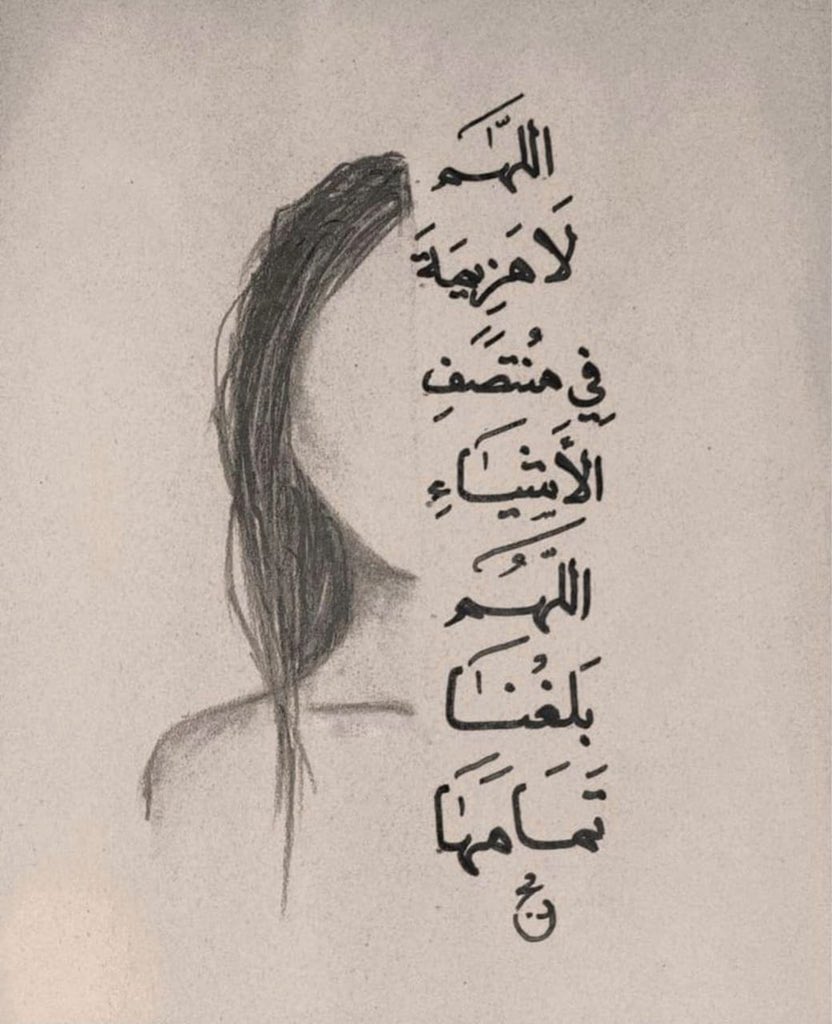 اللّهم
لَا هَزِيمَةَ
فِي مُنْتَصَفِ
الأَشْيَاءِ
اللّهُم
بَلغُنَا
تَمَامَهَا